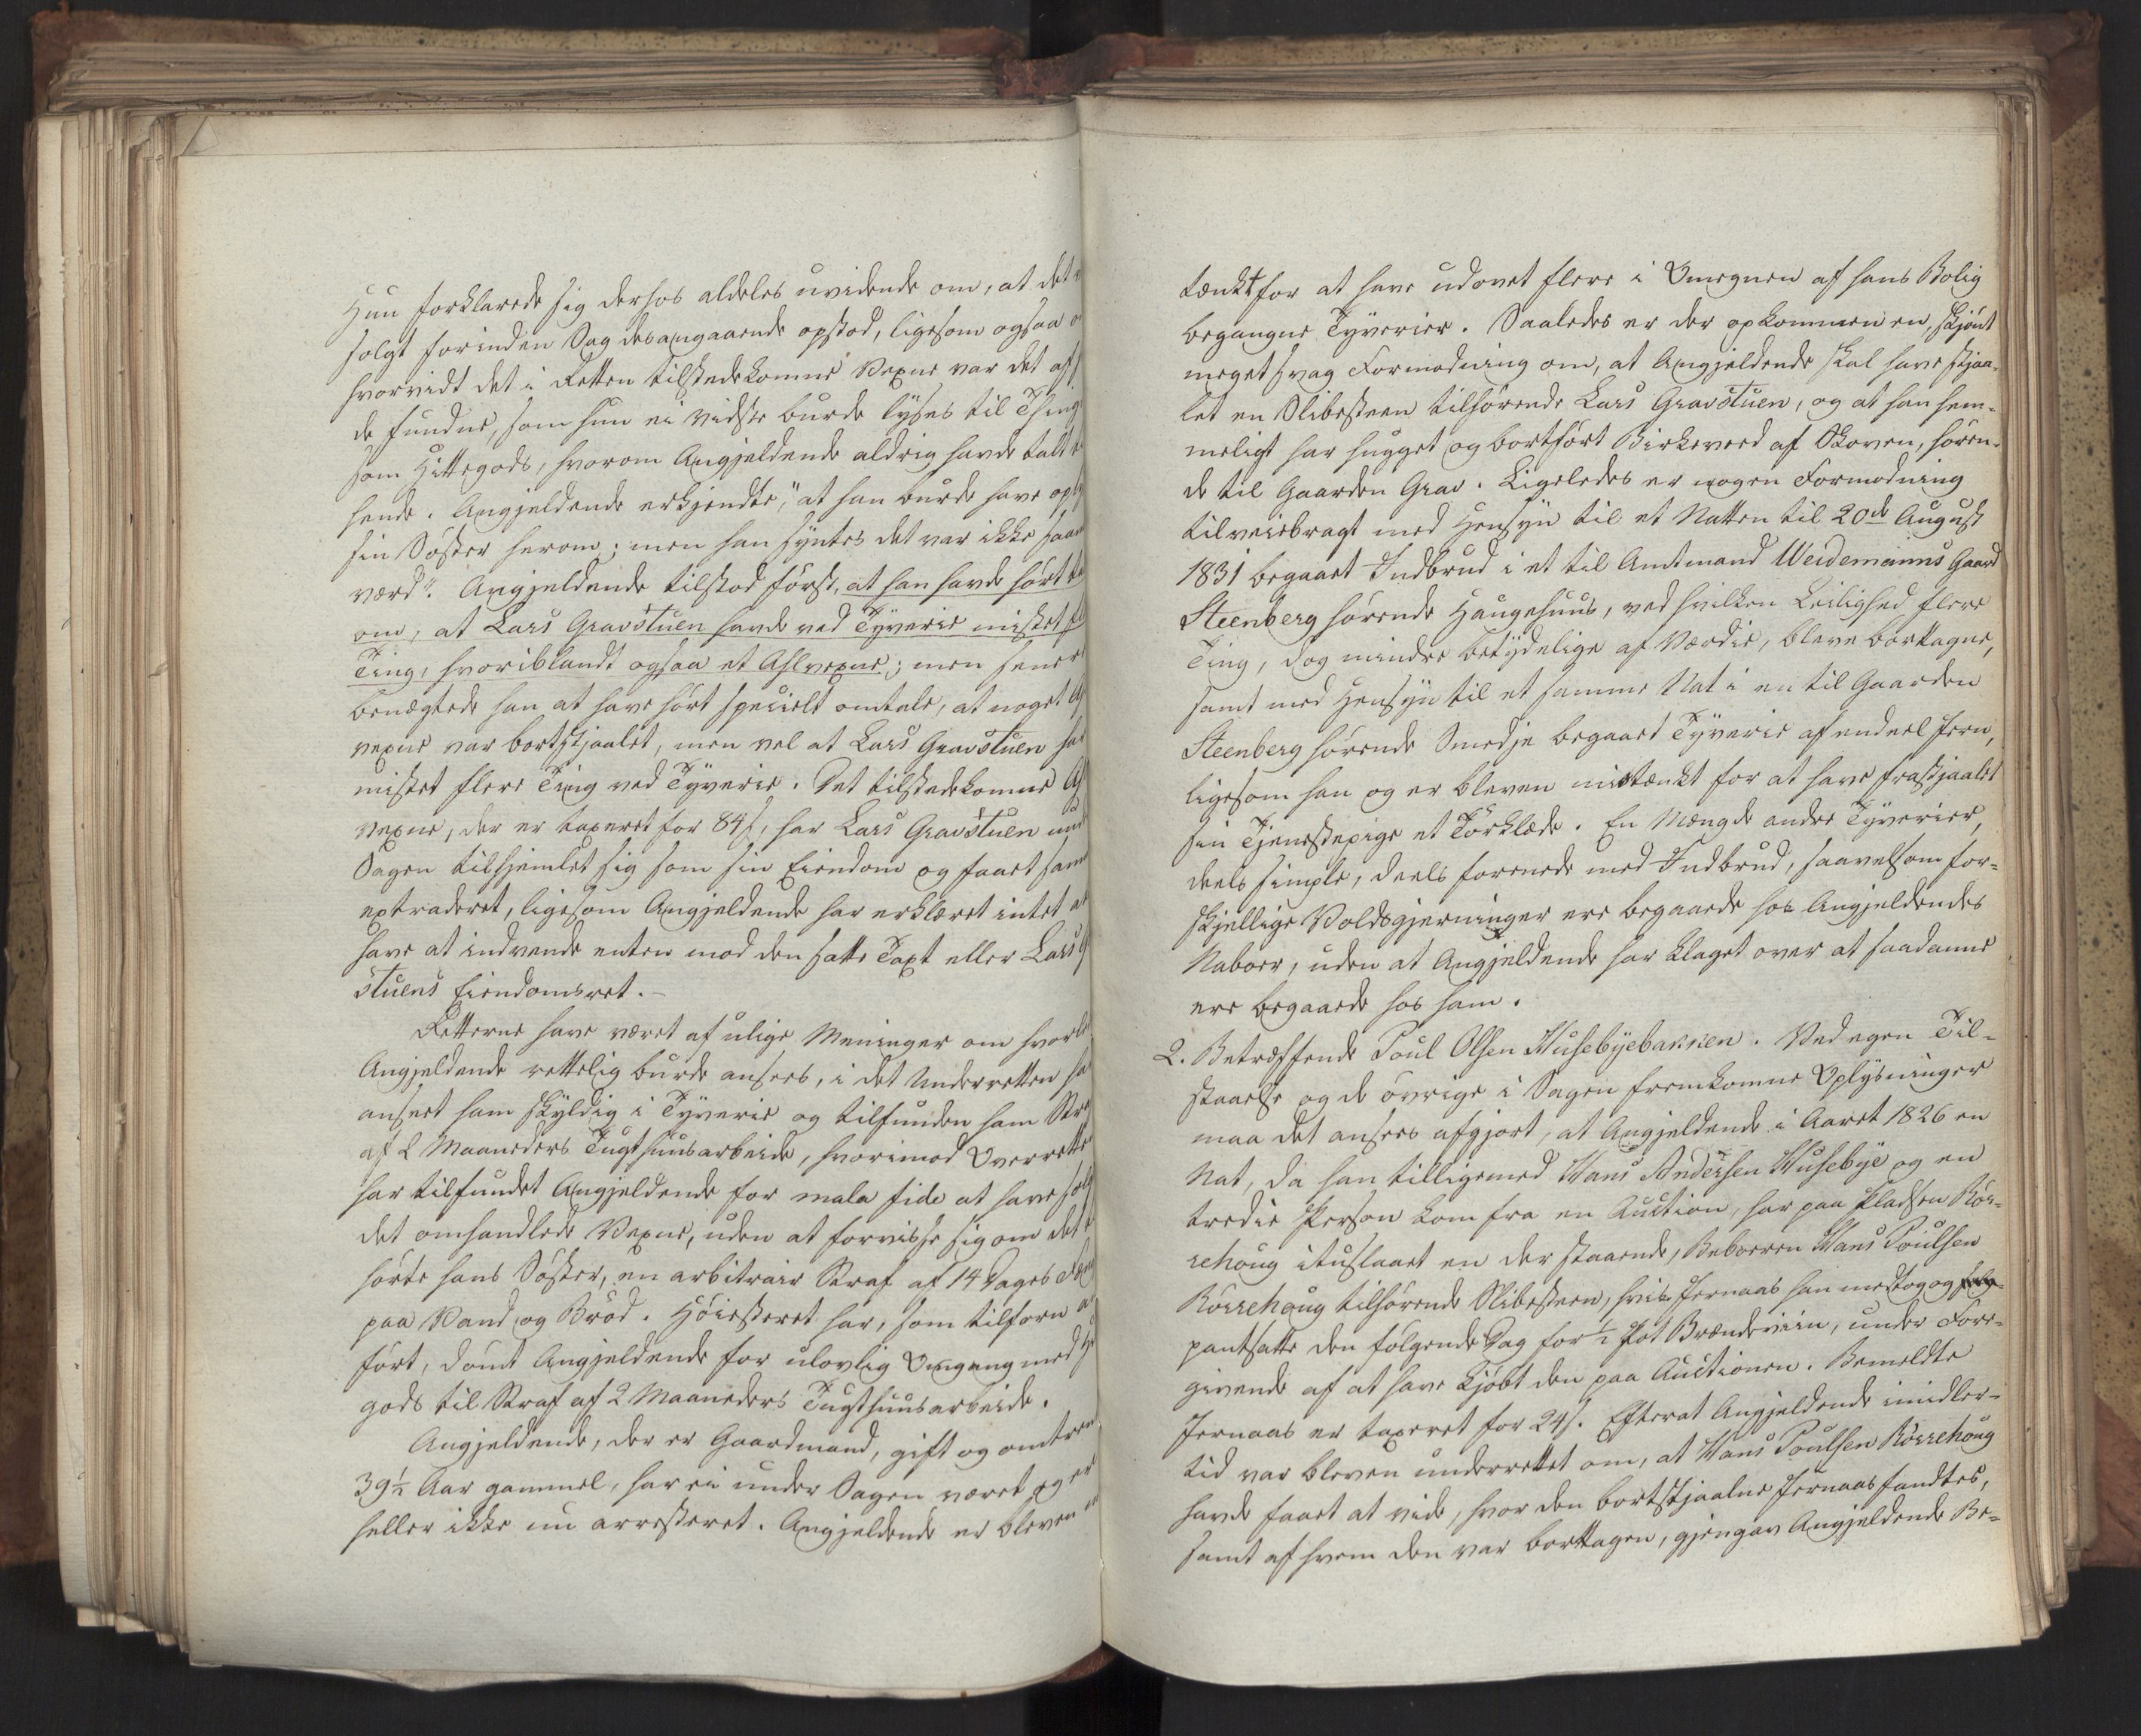 Hun forklarede sig derhos aldeles uvidende om, at det
solgt forinden Sag desangaaende opstod, ligesom ogsaa
hvorvidt det i Retten tilstedekomne Vexne var det af
de fundne, som hun ei vidste burde lyses til Thinge
som Hittegods, hvorom Angjeldende aldrig havde talt
hende. Angjeldende erkjendte, "at han burde have
sin Søster herom; men han syntes det var ikke
værd". Angjeldende tilstod først, at han havde hørt
om, at Lars Gravstuen havde ved Tyverie mistet
Ting, hvoriblandt ogsaa et Ahlvexne; men
benægtede han at have hørt specielt omtale, at noget
vexne var bortstjaalet, men vel at Lars Gravstuen
mistet flere Ting ved Tyverie. Det tilstedekomne
vexne, der er taxeret for 84 s, har Lars Gravstuen
Sagen tilhjemlet sig som sin Eiendom og faaet
extraderet, ligesom Angjeldende har erklæret intet at
have at indvende enten mod den satte Taxt eller Lars
stuens Eiendomsret. –
Retterne have været af ulige Meninger om
Angjeldende rettelig burde ansees, i det Underretten
anseet ham skyldig i Tyverie og tilfunden ham
af 2 Maaneders Tugthuusarbeide, hvorimod Overretten
har tilfundet Angjeldende for mala fide at have
det omhandlede Vexne, uden at forvisse sig om det
hørte hans Søster, en arbitrair Straf af 14 Dages
paa Vand og Brød. Høiesteret har, som tilforn
ført, dømt Angjeldende for ulovlig Omgang med
gods til Straf af 2 Maaneders Tugthuusarbeide.
Angjeldende, der er Gaardmand, gift og
39½ Aar gammel, har ei under Sagen været og er
heller ikke nu arresteret. Angjeldende er bleven
tænkt for at have udøvet flere i Omegnen af hans Bolig
begangne Tyverier. Saaledes er der opkommen en, skjønt
meget svag Formodning om, at Angjeldende skal have stjaa-
let en Slibesteen tilhørende Lars Gravstuen, og at han hem-
meligt har hugget og bortført Birkeveed af Skoven, høren-
de til Gaarden Grav. Ligeledes er nogen Formodning
tilveiebragt med Hensyn til et Natten til 20de August
1831 begaaet Indbrud i et til Amtmand Weidemanns Gaard
Steenberg hørende Haugehuus, ved hvilken Leilighed flere
Ting, dog mindre betydelige af Værdie, bleve borttagne,
samt med Hensyn til et samme Nat i en til Gaarden
Steenberg hørende Smedje begaaet Tyverie af endeel Jern,
ligesom han og er bleven mistænkt for at have frastjaalet
sin Tjenestepige et Tørklæde. En Mængde andre Tyverier,
deels simple, deels forenede med Indbrud, saavelsom for-
skjellige Voldsgjerninger ere begaaede hos Angjeldendes
Naboer, uden at Angjeldende har klaget over at saadanne
ere begaaede hos ham.
2. Betræffende Poul Olsen Husebyebakken. Ved egen Til-
staaelse og de øvrige i Sagen fremkomne Oplysninger
maa det ansees afgjort, at Angjeldende i Aaret 1826 en
Nat, da han tilligemed Hans Andersen Husebye og en
tredie Person kom fra en Auction, har paa Pladsen Rør-
rehoug ituslaaet en der staaende, Beboeren Hans Poulsen
Rørrehoug tilhørende Slibesteen, hvis Jernaas han medtog og
pantsatte den følgende Dag for ½ Pot Brændeviin, under Fore-
givende af at have kjøbt den paa Auctionen. Bemeldte
Jernaas er taxeret for 24 s. Efterat Angjeldende imidler-
tid var bleven underrettet om, at Hans Poulsen Rørrehoug
havde faaet at vide, hvor den bortstjaalne Jernaas fandtes,
samt af hvem den var borttagen, gjengav Angjeldende Be-